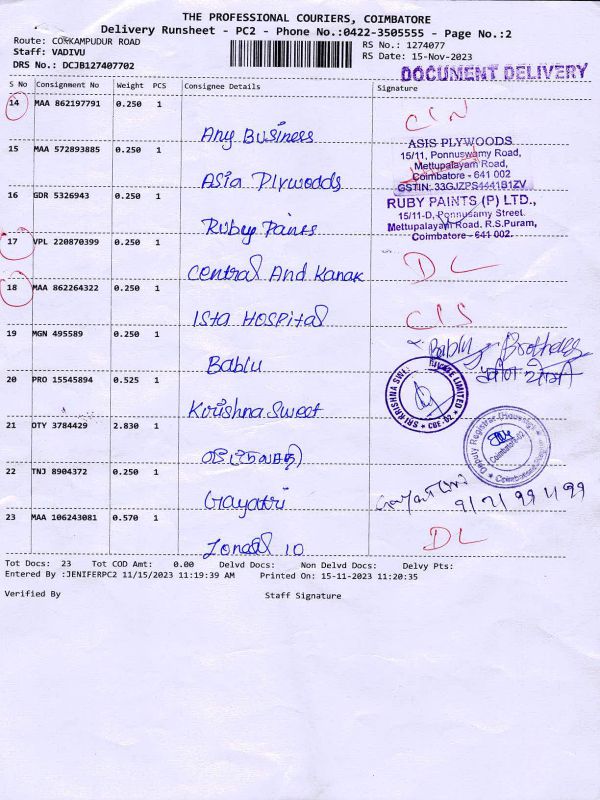 THE PROFESSIONAL COURIERS, COIMBATORE
Delivery Runsheet - PC2 - Phone No.:0422-3505555 - Page No.:2
Route: COKKAMPUDUR ROAD
Staff: VADIVU
DRS No.: DCJB127407702
RS No.: 1274077
RS Date: 15-Nov-2023
DOCUMENT DELIVERY
S No Consignment No Weight PCS Consignee Details Signature
14 MAA 862197791 0.250 1
Any Business
15 MAA 572893885 0.250 1
ASIS PLYWOODS
15/11, Ponnuswamy Road,
Mettupalayam Road,
Coimbatore - 641 002
GSTIN: 33GJZPS4441B1ZV
Asia Plywoods
16 GDR 5326943 0.250 1
RUBY PAINTS (P) LTD.,
15/11-D, Ponnusamy Street.
Mettupalayam Road, R.S.Puram,
Coimbatore - 641 002.
Ruby Paints
17 VPL 220870399 0.250 1
Central And Kanak
DL
18 MAA 862264322 0.250 1
Ista Hospital
19 MGN 495589 0.250 1
Bablu
Bablu Brothers
20 PRO 15545894 0.525 1
Krishna Sweet
SRI KRISHNA SWE PRIVATE LIMITED
CBE-02
21 OTY 3784429 2.830 1
Deputy Registrar (Housing)
Coimbatore-02
22 TNJ 8904372 0.250 1
Gayatri
23 MAA 106243081 0.570 1
Zonal 10
DL
Tot Docs: 23 Tot COD Amt: 0.00 Delvd Docs: Non Delvd Docs: Delvy Pts:
Entered By :JENIFERPC2 11/15/2023 11:19:39 AM Printed On: 15-11-2023 11:20:35
Verified By Staff Signature